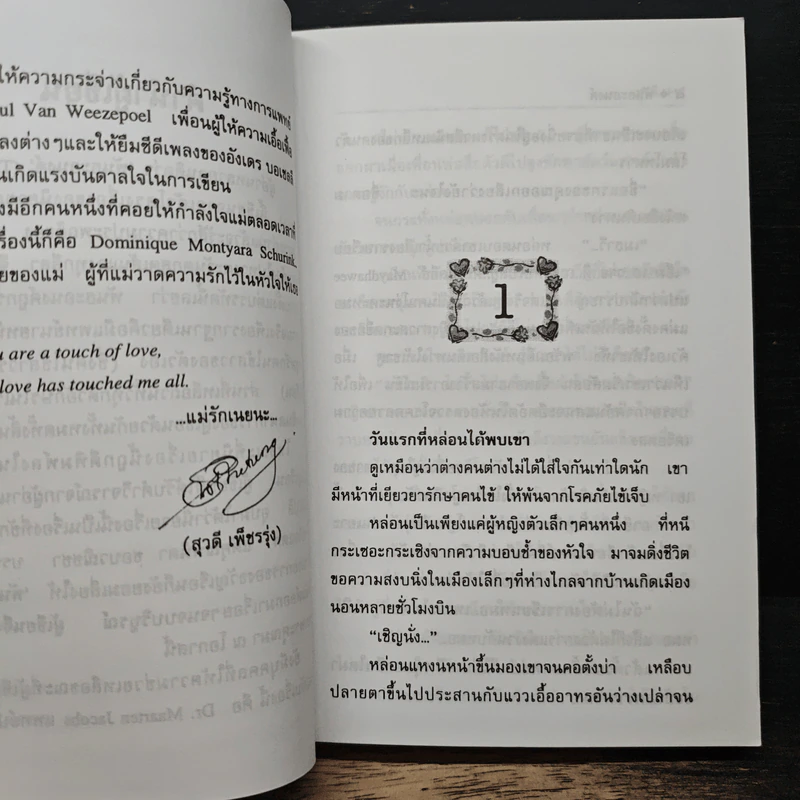 ให้ความกระจ่างเกี่ยวกับความรู้ทางการแพทย์
ul Van Weezepoel เพื่อนผู้ให้ความเอื้อเฟื้อ
ลงต่างๆและให้ยืมซีดีเพลงของอังเดร บอเชลลี
นเกิดแรงบันดาลใจในการเขียน
งมีอีกคนหนึ่งที่คอยให้กำลังใจแม่ตลอดเวลาที่
รื่องนี้ก็คือ Dominique Montyara Schurink
ยของแม่ ผู้ที่แม่วาดความรักไว้ในหัวใจให้เธอ
u are a touch of love,
love has touched me all.
...แม่รักเนยนะ...
(สุวดี เพ็ชรรุ่ง)
1
วันแรกที่หล่อนได้พบเขา
ดูเหมือนว่าต่างคนต่างไม่ได้ใส่ใจกันเท่าใดนัก เขา
มีหน้าที่เยียวยารักษาคนไข้ ให้พ้นจากโรคภัยไข้เจ็บ
หล่อนเป็นเพียงแค่ผู้หญิงตัวเล็กๆคนหนึ่ง ที่หนี
กระเซอะกระเซิงจากความบอบช้ำของหัวใจ มาจมดิ่งชีวิต
ขอความสงบนิ่งในเมืองเล็กๆที่ห่างไกลจากบ้านเกิดเมือง
นอนหลายชั่วโมงบิน
“เชิญนั่ง...”
หล่อนแหงนหน้าขึ้นมองเขาจนคอตั้งบ่า เหลือบ
ปลายตาขึ้นไปประสานกับแววเอื้ออาทรอันว่างเปล่าจน